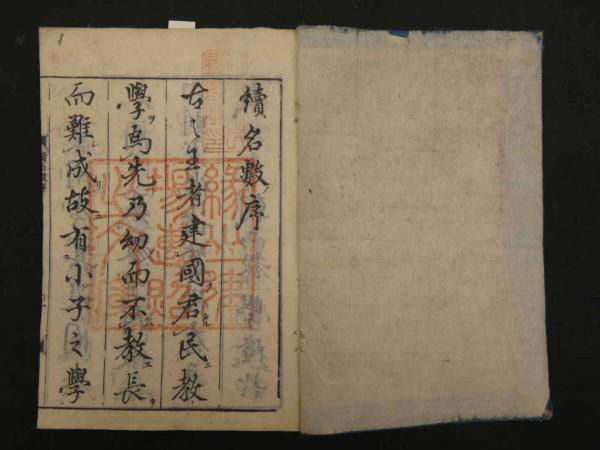 續名數序
古之王者建國君民教
學爲先乃幼而不教長
而難成故有小子之學